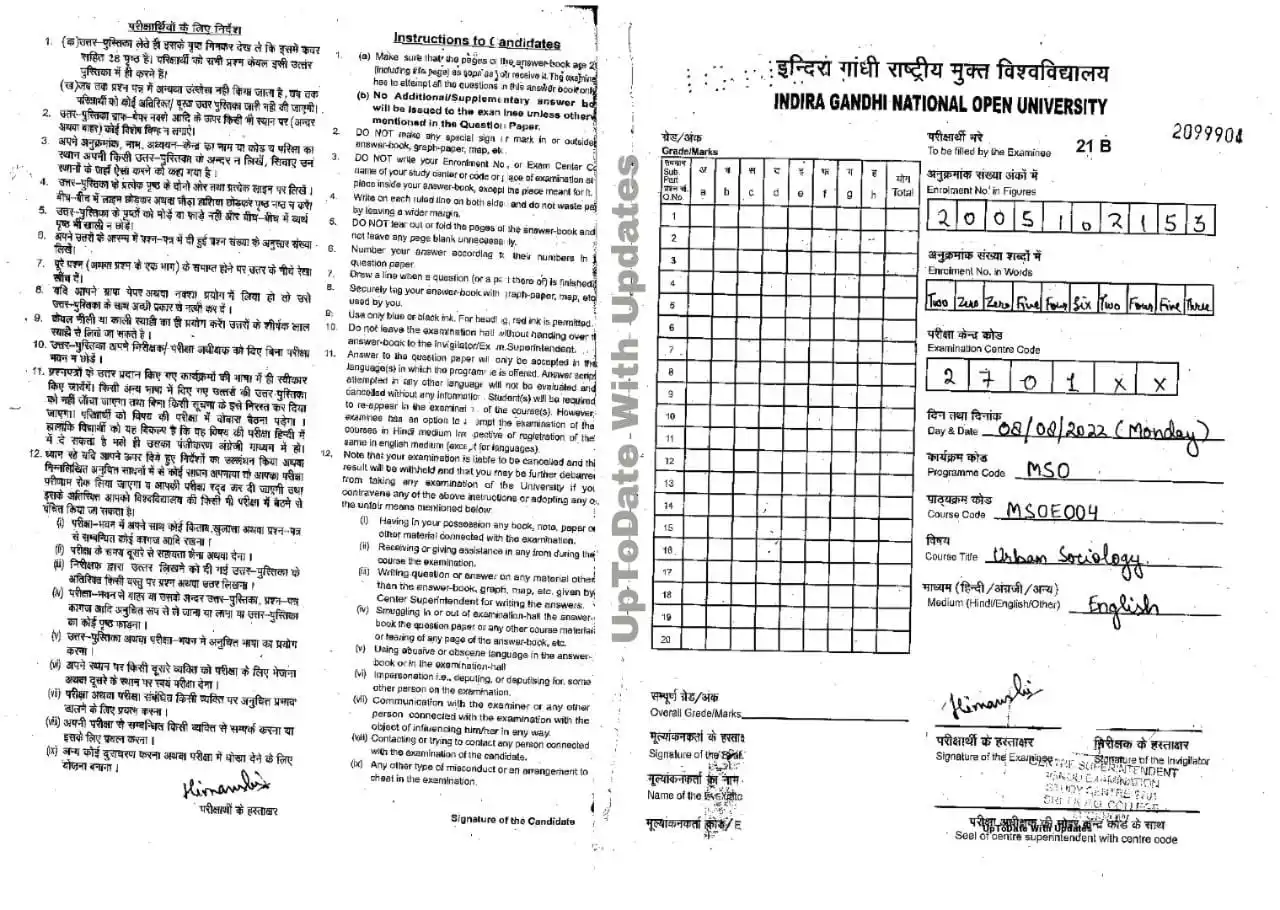 परीक्षार्थियों के लिए निर्देश
1. (क)उत्तर-पुस्तिका लेते ही इसके पृष्ठ गिनकर देख ले कि इसमें कवर
सहित 28 पृष्ठ है। परिक्षार्थी को सभी प्रश्न केवल इसी उत्तर
पुस्तिका में ही करने हैं।
(ख)जब तक प्रश्न पत्र में अन्यथा उल्लेख नही किया जाता है, तब तक
परिक्षार्थी को कोई अतिरिक्त/ पूरक उत्तर पुस्तिका जारी नही की जाएगी।
2. उत्तर-पुस्तिका ग्राफ-पेपर नक्शे आदि के ऊपर किसी भी स्थान पर (अन्दर
अथवा बाहर) कोई विशेष चिन्ह न लगाऐं।
3. अपने अनुक्रमांक, नाम, अध्ययन-केन्द्र का नाम या कोड व परिक्षा का
स्थान अपनी किसी उत्तर-पुस्तिका के अन्दर न लिखें, सिवाए उन
स्थानों के जहाँ ऐसा करने को कहा गया है।
4. उत्तर-पुस्तिका के प्रत्येक पृष्ठ के दोनो ओर तथा प्रत्येक लाइन पर लिखें।
बीच-बीच में लाइन छोडकर अथवा चौड़ा हाशिया छोडकर पृष्ठ नष्ठ न करें
5. उत्तर-पुस्तिका के पृष्ठों को मोड़े या फाड़े नही और बीच-बीच में व्यर्थ
पृष्ठ भी खाली न छोड़े।
6. अपने उत्तरों के आरम्भ में प्रश्न-पत्र में दी हुई प्रश्न संख्या के अनुसार संख्या
लिखें।
7. पूरे प्रश्न (अथवा प्रश्न के एक भाग) के समाप्त होने पर उत्तर के नीचे रेखा
खींच दें।
8. यदि आपने ग्राफ पेपर अथवा नक्शा प्रयोग में लिया हो तो उसे
उत्तर-पुस्तिका के साथ अच्छी प्रकार से नत्थी कर दें।
9. केवल नीली या काली स्याही का ही प्रयोग करें। उत्तरों के शीर्षक लाल
स्याही से लिखे जा सकते है।
10. उत्तर-पुस्तिका अपने निरीक्षक/ परीक्षा अधीक्षक को दिए बिना परीक्षा
भवन न छोड़े।
11. प्रश्नपत्रों के उत्तर प्रदान किए गए कार्यक्रमों की भाषा में ही स्वीकार
किए जायेंगे। किसी अन्य भाषा में दिए गए उत्तरों की उत्तर-पुस्तिका
को नहीं जाँचा जाएगा तथा बिना किसी सूचना के इसे निरस्त कर दिया
जाएगा। परिक्षार्थी को विषय की परीक्षा में दोबारा बैठना पड़ेगा।
हालांकि विद्यार्थी को यह विकल्प है कि वह विषय की परीक्षा हिन्दी में
में दे सकता है भले ही उसका पंजीकरण अंग्रेजी माध्यम में हो।
12. ध्यान रहे यदि आपने ऊपर दिये हुए निर्देशों का उल्लंघन किया अथवा
निम्नलिखित अनुचित साधनों में से कोई साधन अपनाया तो आपका परीक्षा
परिणाम रोक लिया जाएगा व आपकी परीक्षा रद्द कर दी जाएगी तथा
इसके अतिरिक्त आपको विश्वविद्यालय की किसी भी परीक्षा में बैठने से
वंचित किया जा सकता है।
(i) परीक्षा-भवन में अपने साथ कोई किताब,खुलासा अथवा प्रश्न-पत्र
से सम्बन्धित कोई कागज आदि रखना।
(ii) परीक्षा के समय दूसरे से सहायता लेना अथवा देना।
(iii) निरीक्षक द्वारा उत्तर लिखने को दी गई उत्तर-पुस्तिका के
अतिरिक्त किसी वस्तु पर प्रश्न अथवा उत्तर लिखना।
(iv) परीक्षा-भवन से बाहर या उसके अन्दर उत्तर-पुस्तिका, प्रश्न-पत्र
कागज आदि अनुचित रूप से ले जाना या लाना या उत्तर-पुस्तिका
का कोई पृष्ठ फाडना।
(v) उत्तर-पुस्तिका अथवा परीक्षा-भवन में अनुचित भाषा का प्रयोग
करना।
(vi) अपने स्थान पर किसी दूसरे व्यक्ति को परीक्षा के लिए भेजना
अथवा दूसरे के स्थान पर स्वयं परीक्षा देना।
(vii) परीक्षा अथवा परीक्षा संबंधित किसी व्यक्ति पर अनुचित प्रभाव
डालने के लिए प्रयत्न करना।
(viii) अपनी परीक्षा से सम्बन्धित किसी व्यक्ति से सम्पर्क करना या
इसके लिए प्रयत्न करना।
(ix) अन्य कोई दुराचरण करना अथवा परीक्षा में धोखा देने के लिए
योजना बनाना।
Himanshi
परीक्षार्थी के हस्ताक्षर
Instructions to Candidates
1. (a) Make sure that the pages of the answer-book are 2
(including title page) as soon as you receive it. The examinee
has to attempt all the questions in this answer book only
(b) No Additional/Supplementary answer bo
will be issued to the examinee unless other
mentioned in the Question Paper.
2. DO NOT make any special sign or mark in or outside
answer-book, graph-paper, map, etc.
3. DO NOT write your Enrolment No., or Exam Center C
name of your study center or code or place of examination at
place inside your answer-book, except the place meant for it.
4. Write on each ruled line on both sides and do not waste pa
by leaving a wider margin.
5. DO NOT tear out or fold the pages of the answer-book and
not leave any page blank unnecessarily.
6. Number your answer according to their numbers in
question paper.
7. Draw a line when a question (or a part there of) is finished
8. Securely tag your answer-book with graph-paper, map, etc
used by you.
9. Use only blue or black ink. For heading, red ink is permitted.
10. Do not leave the examination hall without handing over t
answer-book to the Invigilator/Exam.Superintendent.
11. Answer to the question paper will only be accepted in the
language(s) in which the programme is offered. Answer script
attempted in any other language will not be evaluated and
cancelled without any information. Student(s) will be required
to re-appear in the examination of the course(s). However,
examinee has an option to attempt the examination of the
courses in Hindi medium irrespective of registration of the
same in english medium (except for languages).
12. Note that your examination is liable to be cancelled and thi
result will be withheld and that you may be further debarred
from taking any examination of the University if you
contravene any of the above instructions or adopting any o
the unfair means mentioned below:
(i) Having in your possession any book, note, paper or
other material connected with the examination.
(ii) Receiving or giving assistance in any from during the
course the examination.
(iii) Writing question or answer on any material other
than the answer-book, graph, map, etc. given by
Center Superintendent for writing the answers.
(iv) Smuggling in or out of examination-hall the answer-
book the question paper or any other course material
or tearing of any page of the answer-book, etc.
(v) Using abusive or obscene language in the answer-
book or in the examination-hall
(vi) Impersonation i.e., deputing, or deputising for, some
other person on the examination.
(vii) Communication with the examiner or any other
person connected with the examination with the
object of influencing him/her in any way.
(viii) Contacting or trying to contact any person connected
with the examination of the candidate.
(ix) Any other type of misconduct or an arrangement to
cheat in the examination.
Signature of the Candidate
UpToDate-With-Updates
इन्दिरा गांधी राष्ट्रीय मुक्त विश्वविद्यालय
INDIRA GANDHI NATIONAL OPEN UNIVERSITY
2099904
ग्रेड/अंक
Grade/Marks
Sub. Part
प्रश्न सं.
Q.No.
अ ब स द इ फ ग ह योग
a b c d e f g h Total
1
2
3
4
5
6
7
8
9
10
11
12
13
14
15
16
17
18
19
20
सम्पूर्ण ग्रेड/अंक
Overall Grade/Marks
मूल्यांकनकर्ता के हस्ताक्षर
Signature of the
मूल्यांकनकर्ता का नाम
Name of the
मूल्यांकनकर्ता कोड/E
परीक्षार्थी भरे
To be filled by the Examinee
21 B
अनुक्रमांक संख्या अंकों में
Enrolment No. in Figures
2005102153
अनुक्रमांक संख्या शब्दों में
Enrolment No. in Words
Two Zero Zero Five Four Six Two Four Five Three
परीक्षा केन्द्र कोड
Examination Centre Code
2701xx
दिन तथा दिनांक
Day & Date 08/08/2022 (Monday)
कार्यक्रम कोड
Programme Code MSO
पाठ्यक्रम कोड
Course Code MSOE004
विषय
Course Title Urban Sociology
माध्यम (हिन्दी/अंग्रजी/अन्य)
Medium (Hindi/English/Other) English
Himanshi
परीक्षार्थी के हस्ताक्षर
Signature of the Examinee
निरीक्षक के हस्ताक्षर
Signature of the Invigilator
CENTRE SUPERINTENDENT
IGNOU EXAMINATION
STUDY CENTRE 2701
COLLEGE
परीक्षा अधीक्षक की मोहर केन्द्र कोड के साथ
UpToDate With Updates
Seel of centre superintendent with centre code